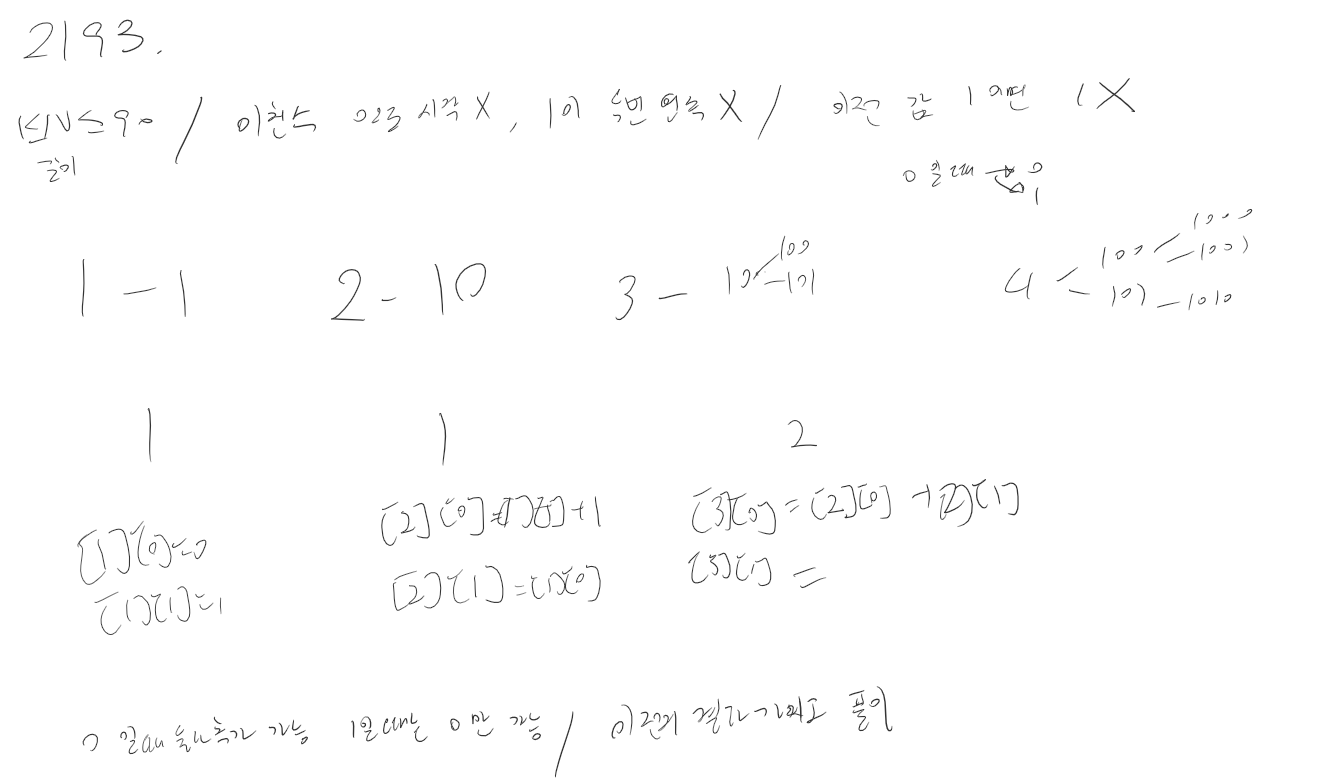 2193.
1≤N≤90 / 이친수 0으로 시작 X, 1이 두번 연속 X / 이전 값 1 이면 1X
길이
0일때 → 0
1
1 - 1 2 - 10 3 - 10 - 100 - 101 4 < 100 - 1000 - 1001
101 - 1010
1 1 2
[1][0]=0 [2][0]=[1][0]+1 [3][0]=[2][0]+[2][1]
[1][1]=1 [2][1]=[1][0] [3][1] =
0 일때 둘다 추가 가능 1일때는 0만 가능 / 이전의 결과 가지고 풀이